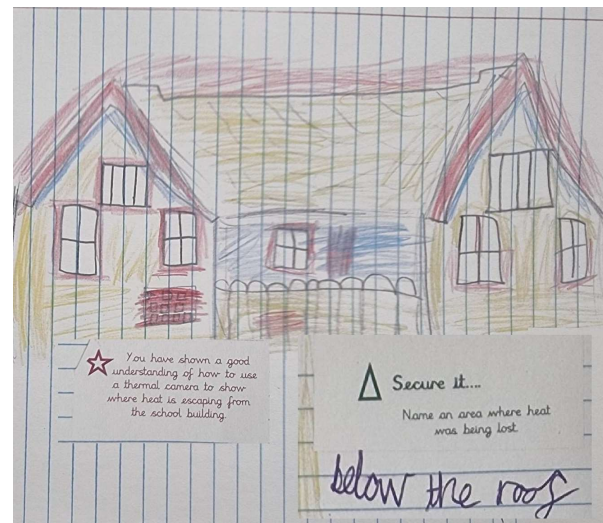 You have shown a good
understanding of how to use
a thermal camera to show
where heat is escaping from
the school building.
Secure it....
Name an area where heat
was being lost.
below the roof